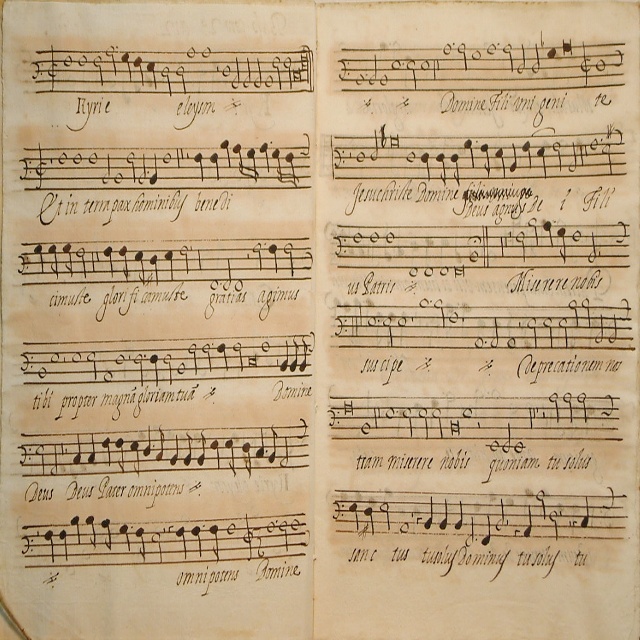 Kyrie eleyson
Et in terra pax hominibus benedi
cimuste glorificamuste gratias agimus
tibi propter magnã gloriam tuã Domine
Deus Deus Pater omnipotens
omnipotens Domine
Domine Fili uni geni te
Jesuchriste Domine Deus agnus De i Fili
us Patris Miserere nobis
suscipe Deprecationem nos
tram miserere nobis quoniam tu solus
sanc tus tusolus Dominus tu solus tu